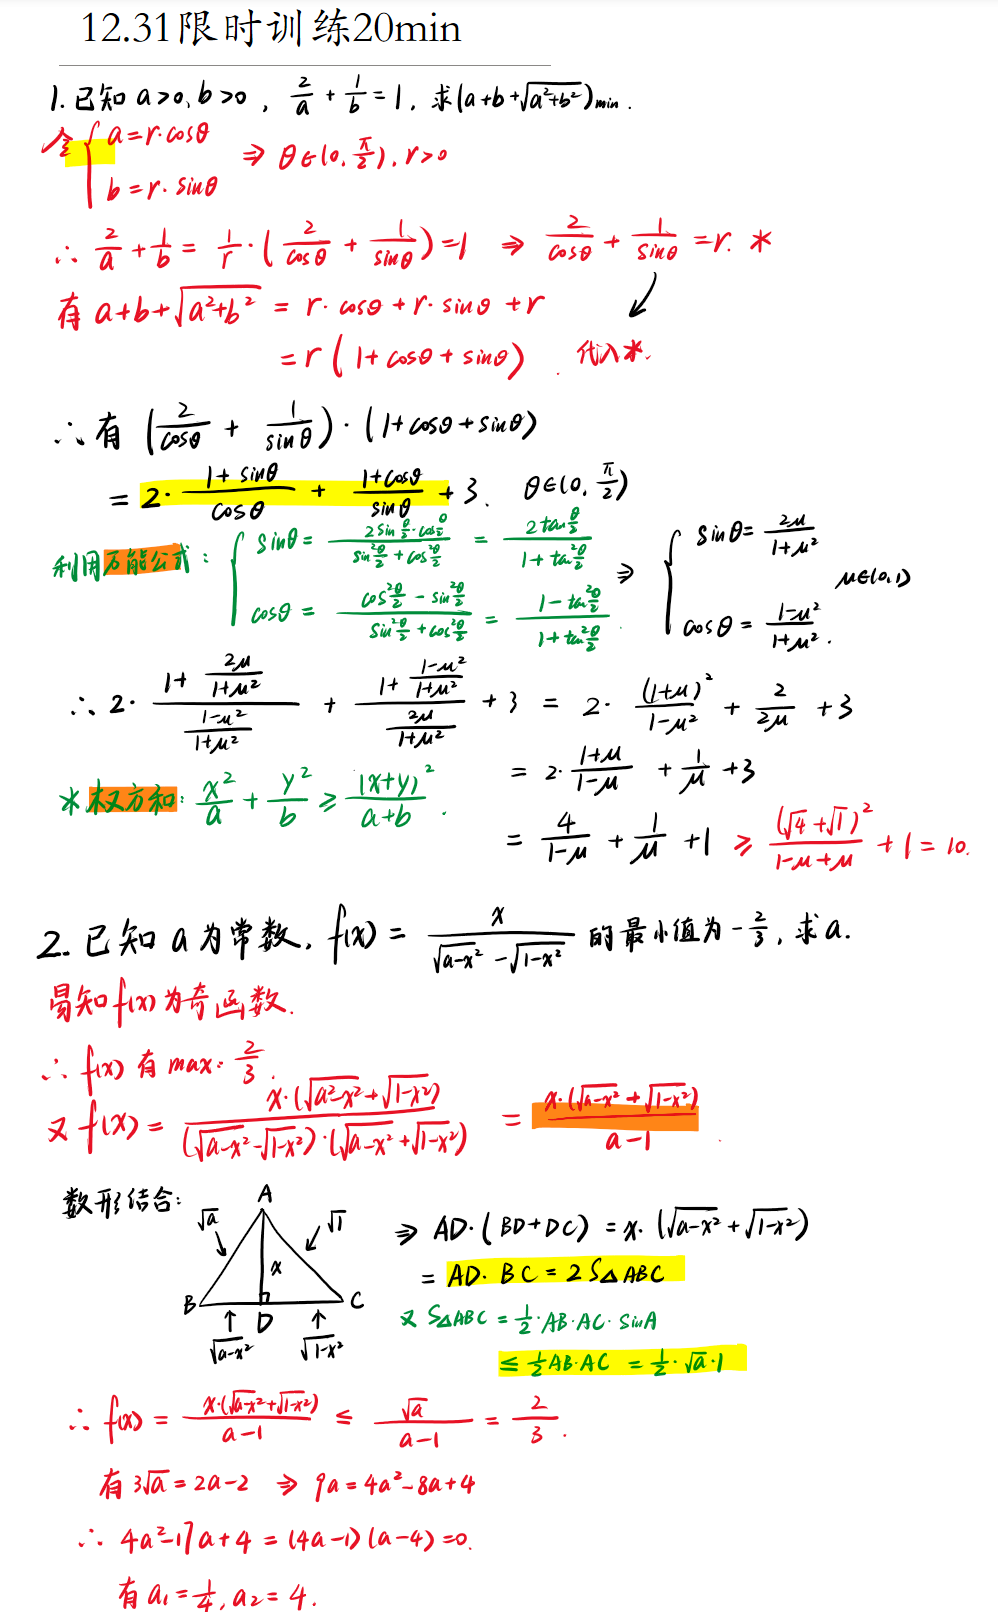 12.31限时训练20min
1. 已知 a>0, b>0, 2/a + 1/b = 1, 求(a+b+√(a²+b²))min.
令 { a=r·cosθ
b=r·sinθ ⇒ θ∈(0, π/2), r>0
∴ 2/a + 1/b = 1/r·(2/cosθ + 1/sinθ)=1 ⇒ 2/cosθ + 1/sinθ = r. *
有 a+b+√(a²+b²) = r·cosθ+r·sinθ+r
= r(1+cosθ+sinθ) 代入*.
∴有 (2/cosθ + 1/sinθ)·(1+cosθ+sinθ)
= 2·(1+sinθ)/cosθ + (1+cosθ)/sinθ + 3. θ∈(0, π/2)
利用万能公式: { sinθ = (2sin θ/2·cos θ/2)/(sin² θ/2+cos² θ/2) = (2tan θ/2)/(1+tan² θ/2) ⇒ { sinθ = 2μ/(1+μ²)
μ∈(0,1)
cosθ = (cos² θ/2 − sin² θ/2)/(sin² θ/2+cos² θ/2) = (1−tan² θ/2)/(1+tan² θ/2). cosθ = (1−μ²)/(1+μ²).
∴ 2·(1+2μ/(1+μ²))/((1−μ²)/(1+μ²)) + (1+(1−μ²)/(1+μ²))/(2μ/(1+μ²)) + 3 = 2·(1+μ)²/(1−μ²) + 2/2μ + 3
= 2·(1+μ)/(1−μ) + 1/μ + 3
*权方和: x²/a + y²/b ≥ (x+y)²/(a+b).
= 4/(1−μ) + 1/μ + 1 ≥ (√4+√1)²/(1−μ+μ) + 1 = 10.
2. 已知 a为常数, f(x) = x/(√(a−x²) − √(1−x²)) 的最小值为 −2/3, 求a.
易知f(x)为奇函数.
∴ f(x) 有 max: 2/3.
又 f(x) = x·(√(a²−x²)+√(1−x²))/((√(a−x²)−√(1−x²))·(√(a−x²)+√(1−x²))) = x·(√(a−x²)+√(1−x²))/(a−1).
数形结合:
A
√a
√1
x
B
D
C
√(a−x²)
√(1−x²)
⇒ AD·(BD+DC) = x·(√(a−x²)+√(1−x²))
= AD·BC = 2S△ABC
又 S△ABC = 1/2·AB·AC·sinA
≤ 1/2AB·AC = 1/2·√a·1
∴ f(x) = x·(√(a−x²)+√(1−x²))/(a−1) ≤ √a/(a−1) = 2/3.
有 3√a = 2a−2 ⇒ 9a = 4a²−8a+4
∴ 4a²−17a+4 = (4a−1)(a−4)=0.
有 a₁=1/4, a₂=4.